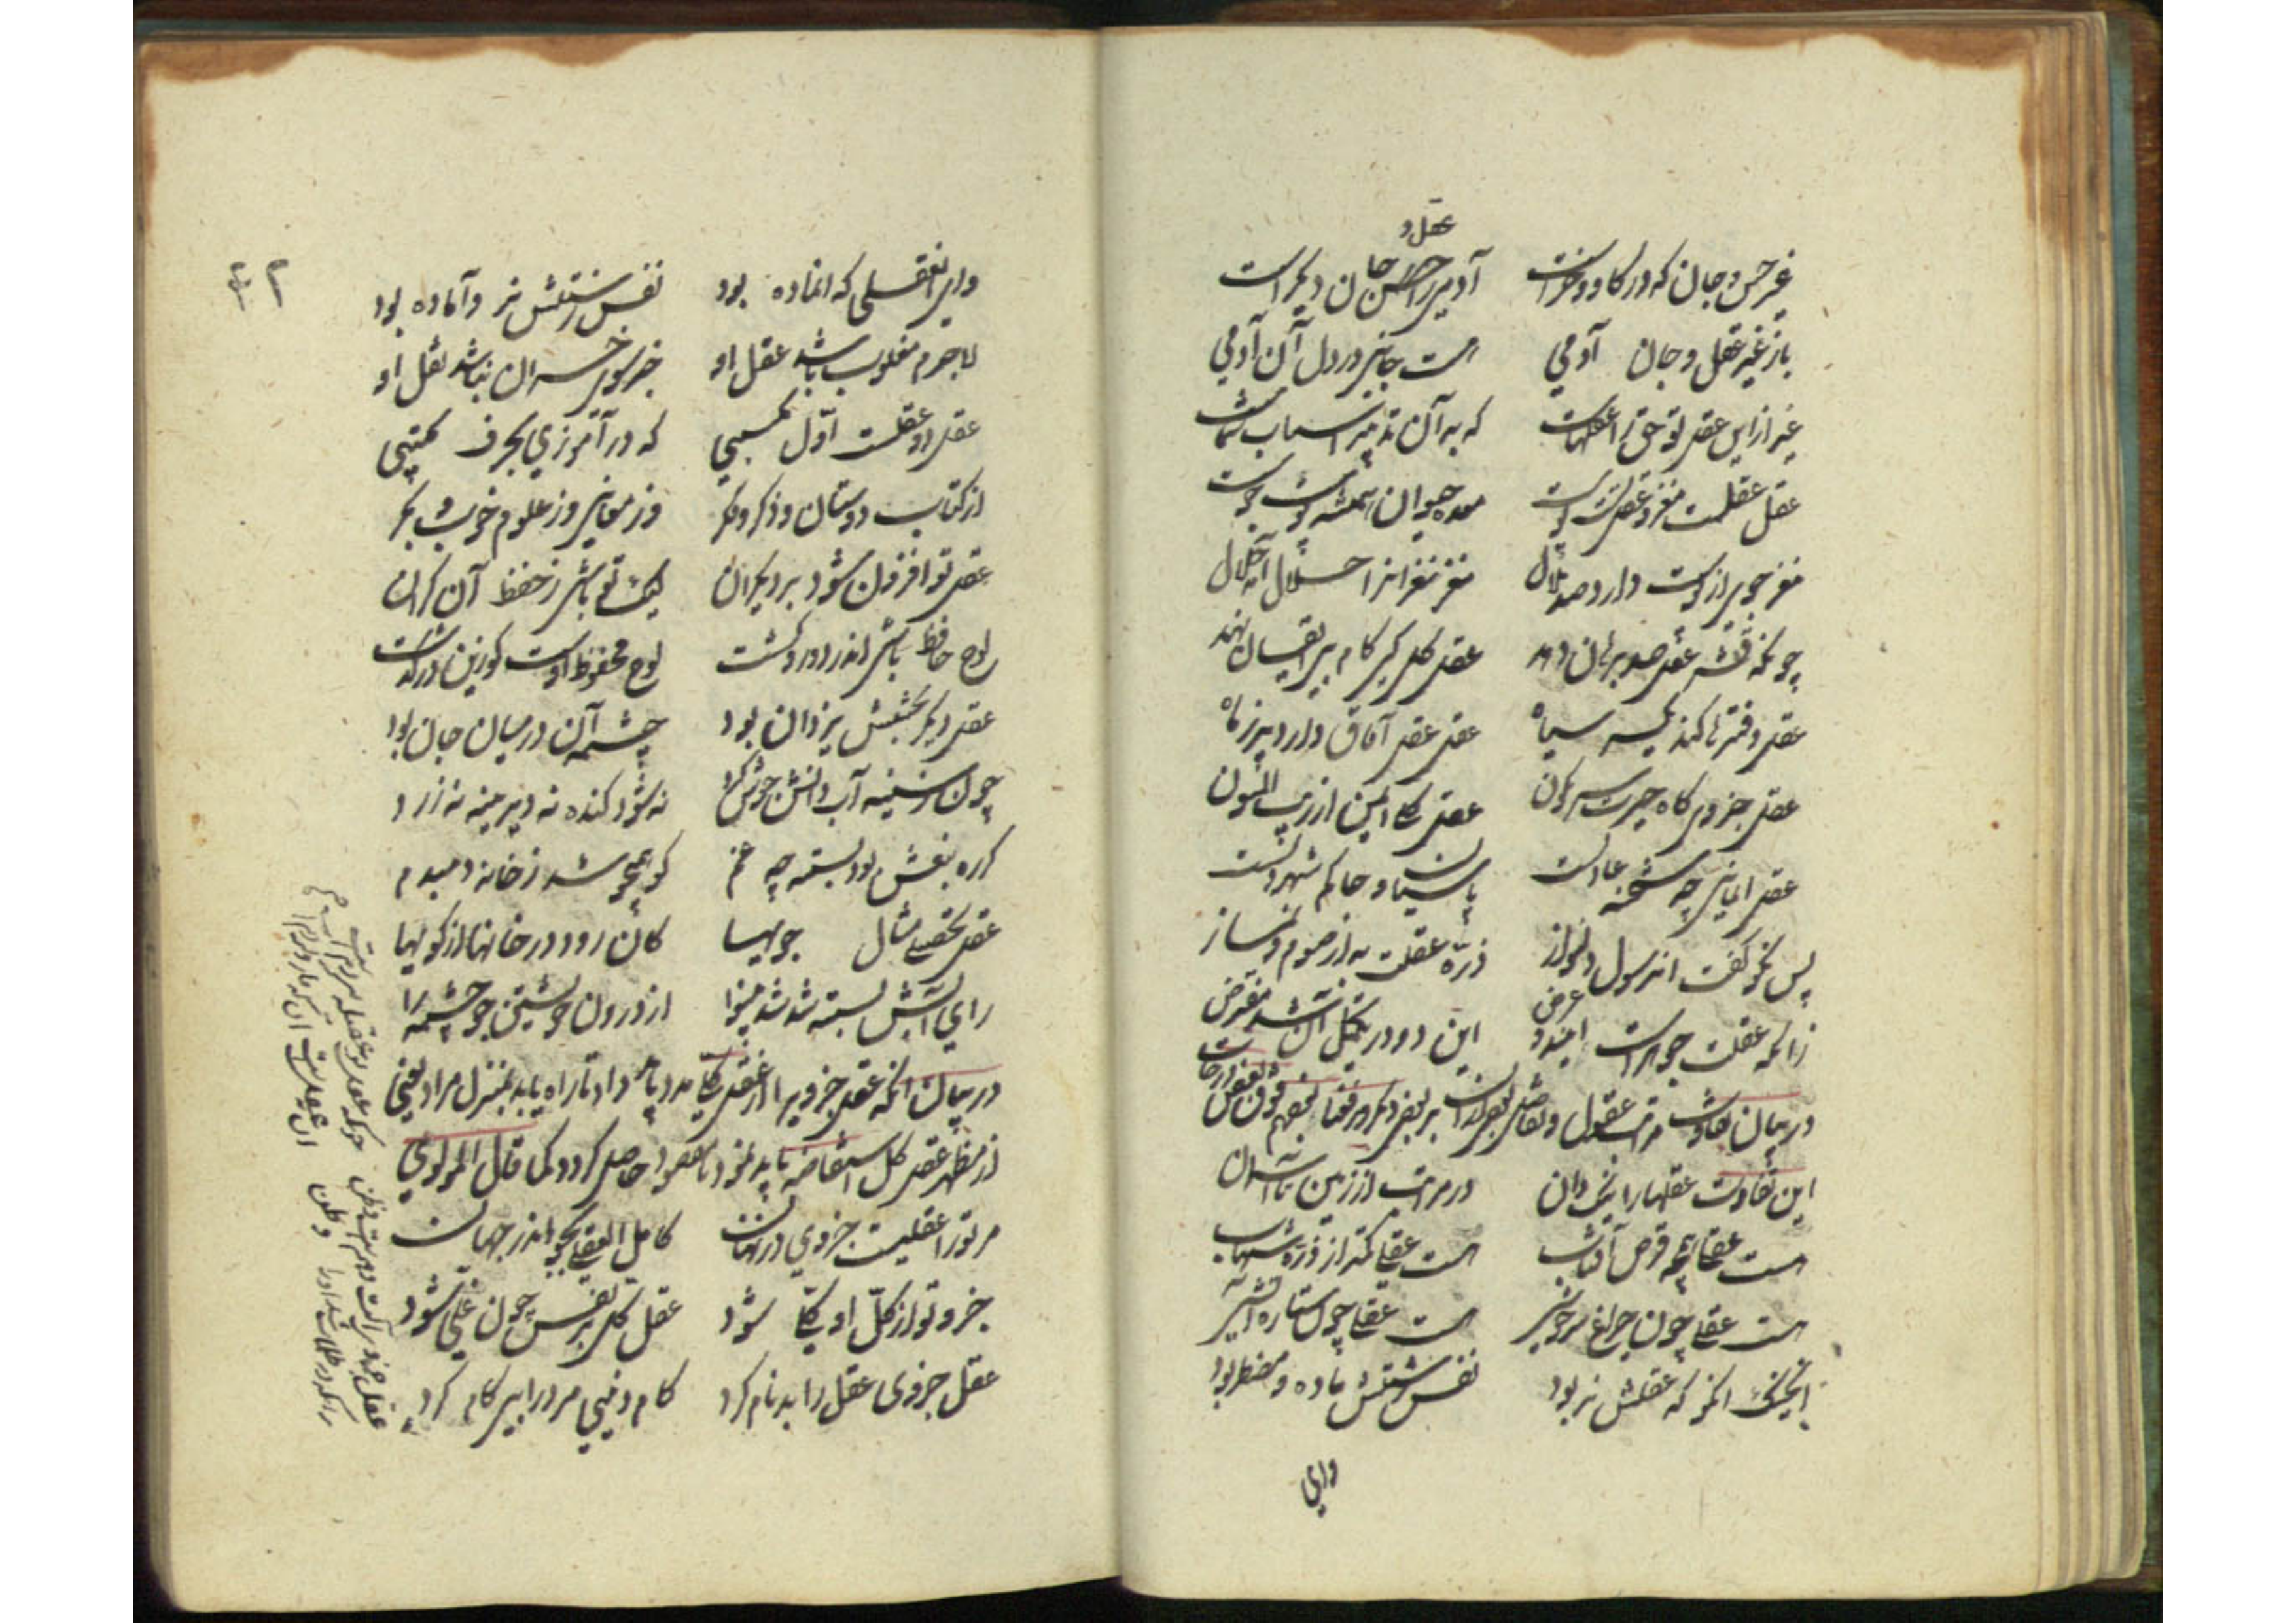 عقل و
غیر حس و جان که در گاو و خرست آدمی را حس جان دیگر است
باز غیر عقل و جان آدمی هست جانی در دل آن آدمی
غیر از این عقل تو حق را عقلهاست که به آن تدبیر اسباب شماست
عقل عقلت مغز و عقل تست پوست معده حیوان همیشه پوست جوست
مغز جوی از پوست دارد صد ملال مغز نغزانرا حلال آمد حلال
چونکه قشر عقل صد برهان دهد عقل کل کی گام بی ایقان نهد
عقل دفترها کند یکسر سیاه عقل عقل آفاق دارد پر ز ماه
عقل جزوی گاه چیره گه نگون عقل کلی ایمن از ریب المنون
عقل ایمانی چه شحنه عادلست پاسبان و حاکم شهر دلست
پس نکو گفت آن رسول دلنواز ذره عقلت به از صوم و نماز
زانکه عقلت جوهرست این دو عرض این دو در تکمیل آن شد مفترض
در بیان تفاوت مراتب عقول
این تفاوت عقلها را نیک دان در مراتب از زمین تا آسمان
هست عقلی همچو قرص آفتاب هست عقلی کمتر از ذره شهاب
هست عقلی چون چراغ سرخوشی هست عقلی چون ستاره آتشی
ای خنک آنکس که عقلش نر بود نفس زشتش ماده و مضطر بود
وای
۴۲
وای آن عقلی که او ماده بود نفس زشتش نر و آماده بود
لاجرم مغلوب باشد عقل او جز سوی خسران نباشد نقل او
عقل دو عقلست اول مکسبی که در آموزی بحرف مکتبی
از کتاب و دوستان و ذکر و فکر وز معانی وز علوم خوب و بکر
عقل تو افزون شود بر دیگران لیک تو باشی ز حفظ آن گران
لوح حافظ باشی اندر دور و گشت لوح محفوظ اوست کو زین در گذشت
عقل دیگر بخشش یزدان بود چشمه آن در میان جان بود
چون ز سینه آب دانش جوش کرد نه شود گنده نه دیرینه نه زرد
گر ره نبعش بود بسته چه غم کو همی جوشد ز خانه دمبدم
عقل تحصیلی مثال جویها کان رود در خانها از کویها
راه آبش بسته شد شد بینوا از درون خویشتن جو چشمه را
در بیان آنکه عقل جزوی را از عقل کلی مدد باید داد تا راه یابد بمنزل مراد یعنی
از مظهر عقل کل استفاضه باید نمود تا مقصود حاصل گردد کما قال المولوی
مر تو را عقلیست جزوی در نهان کامل العقلی بجو اندر جهان
جزو تو از کل او کلی شود عقل کل بر نفس چون غلی شود
عقل جزوی عقل را بد نام کرد کام دنیی مرد را بی کام کرد